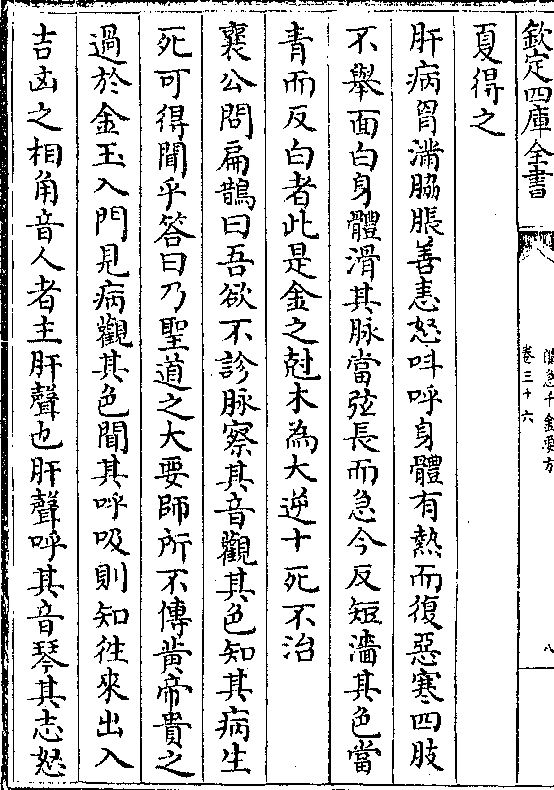 欽定四庫全書
備急千金要方
卷三十六
八
夏得之
肝病胷滿脇脹善恚怒呌呼身體有熱而復惡寒四肢
不舉面白身體滑其脉當弦長而急今反短濇其色當
青而反白者此是金之尅木為大逆十死不治
襄公問扁鵲曰吾欲不診脉察其音觀其色知其病生
死可得聞乎答曰乃聖道之大要師所不傳黄帝貴之
過於金玉入門見病觀其色聞其呼吸則知徃來出入
吉凶之相角音人者主肝聲也肝聲呼其音琴其志怒